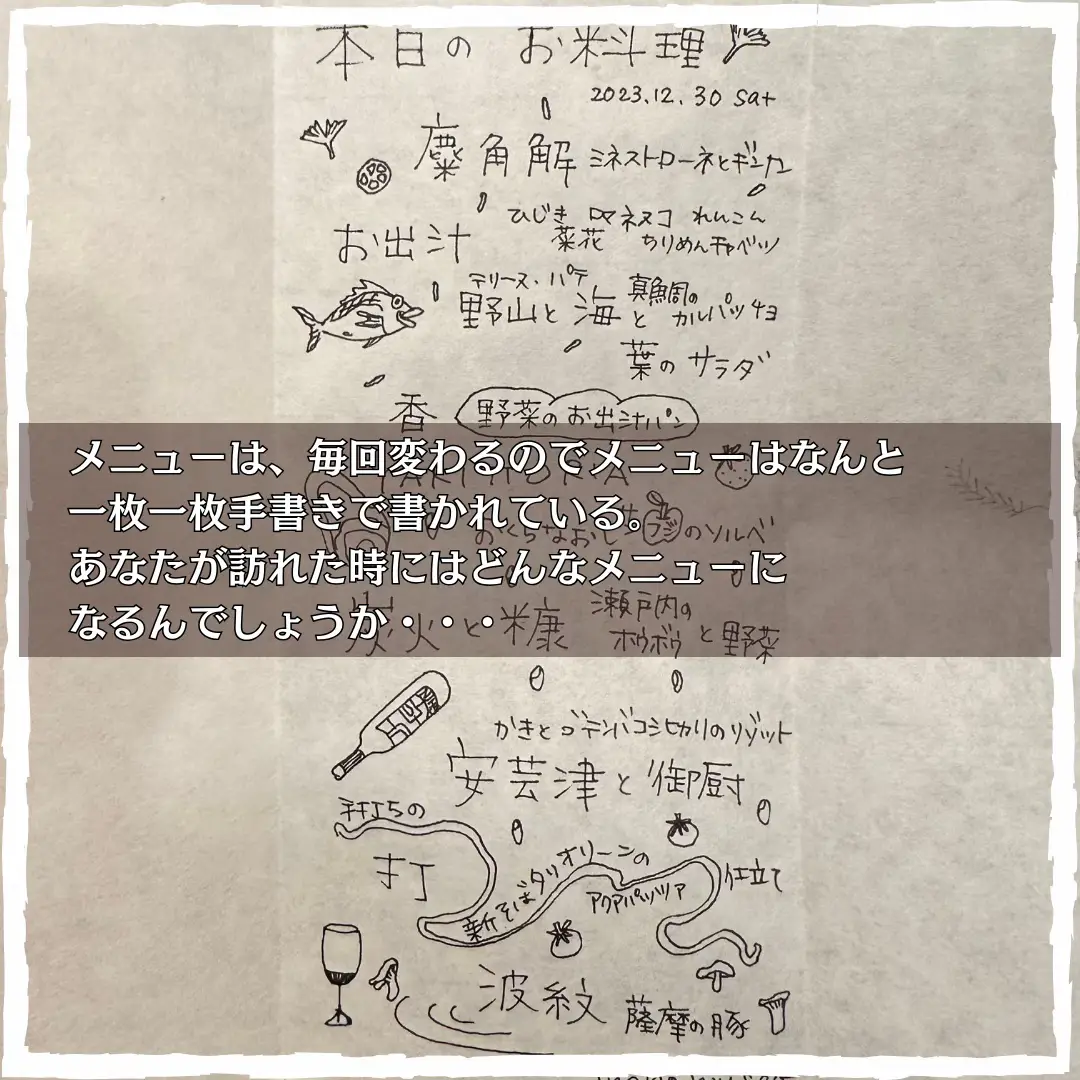 本日の お料理
2023.12.30 sat
麋角解 ミネストローネとギンカ
お出汁 ひじき ロマネスコ れんこん
菜花 ちりめんキャベツ
テリーヌ・パテ
野山と海 と 真魚周の カルパッチョ
葉の サラダ
香 野菜のお出汁パン
メニューは、毎回変わるのでメニューはなんと
一枚一枚手書きで書かれている。
おくちなおし フジのソルベ
あなたが訪れた時にはどんなメニューに
なるんでしょうか・・・
炭火と糠 瀬戸内の ホウボウ と野菜
かきと ゴテンバコシヒカリのリゾット
安芸津と御厨
手打ちの
打 新そばタリオリーンの アクアパッツァ 仕立て
波紋 薩摩の豚